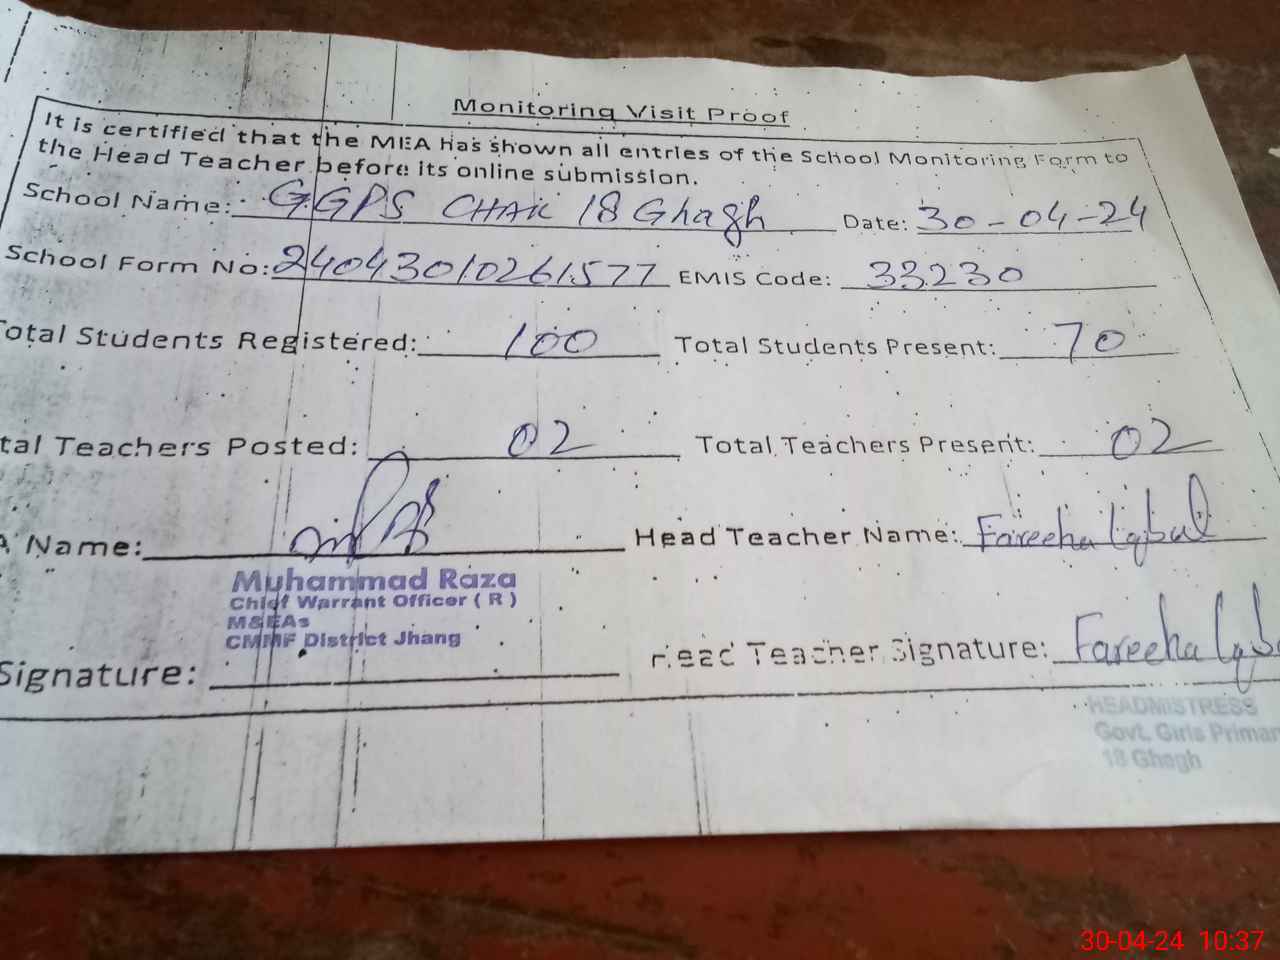 Monitoring Visit Proof
It is certified that the MEA has shown all entries of the School Monitoring Form to
the Head Teacher before its online submission.
School Name: GGPS CHAK 18 Ghagh Date: 30-04-24
School Form No: 24043010261577 EMIS Code: 33230
otal Students Registered: 100 Total Students Present: 70
tal Teachers Posted: 02 Total Teachers Present: 02
A Name: Head Teacher Name: Fareeha Iqbal
Muhammad Raza
Chief Warrant Officer ( R )
M&EAs
CMMF District Jhang
Signature: Head Teacher Signature: Fareeha Iqba
HEADMISTRESS
Govt. Girls Primar
18 Ghagh
30-04-24 10:37